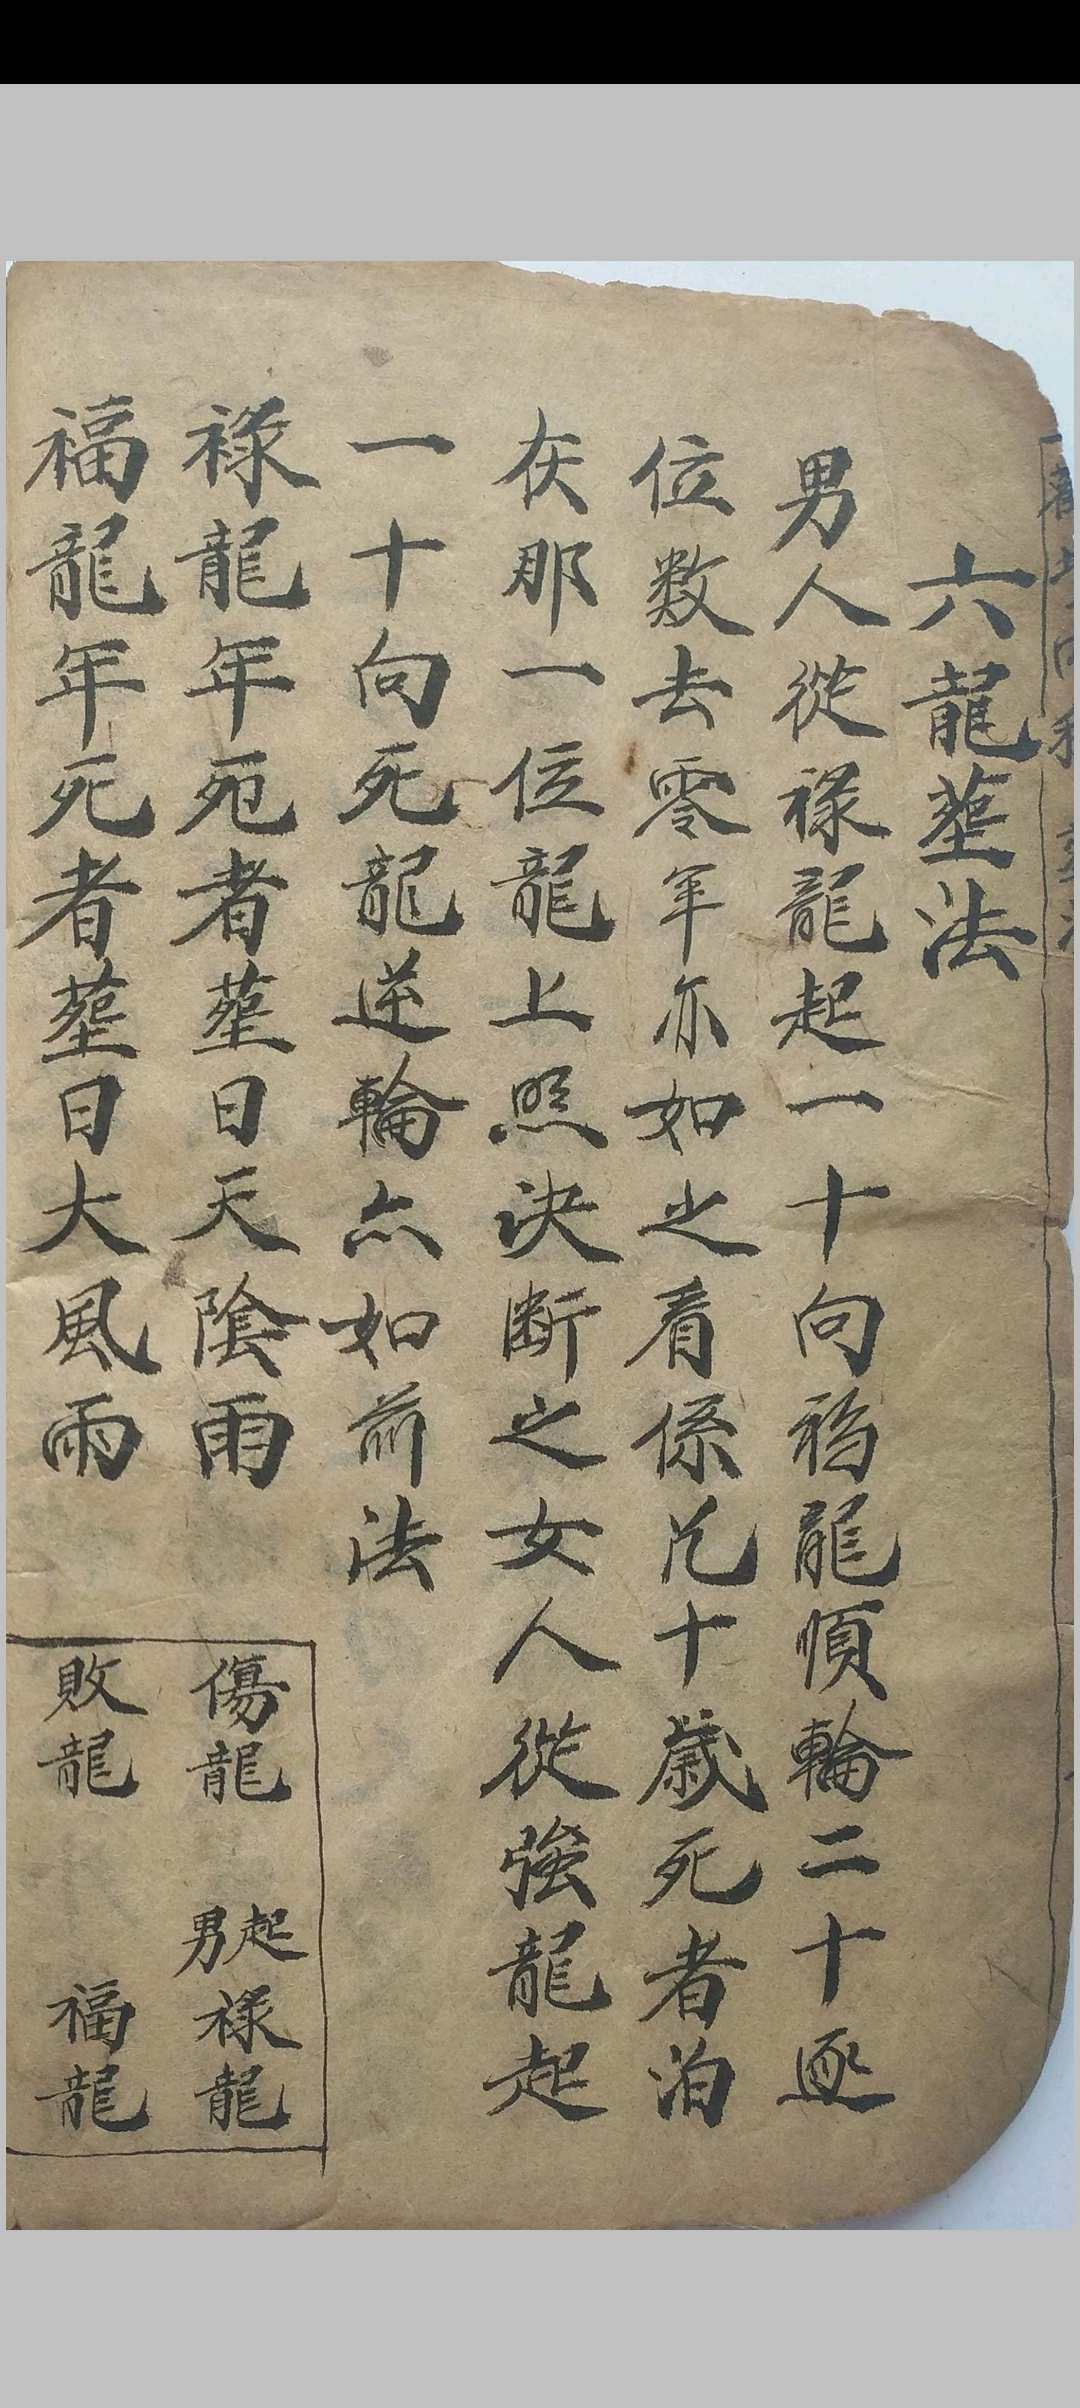 六龍塟法
男人從禄龍起一十向福龍順輪二十逐
位数去零年亦如之看係几十歳死者泊
在那一位龍上照决斷之女人從強龍起
一十向死龍逆輪亦如前法
禄龍年死者塟日天陰雨
福龍年死者塟日大風雨
傷龍 男起禄龍
敗龍 福龍